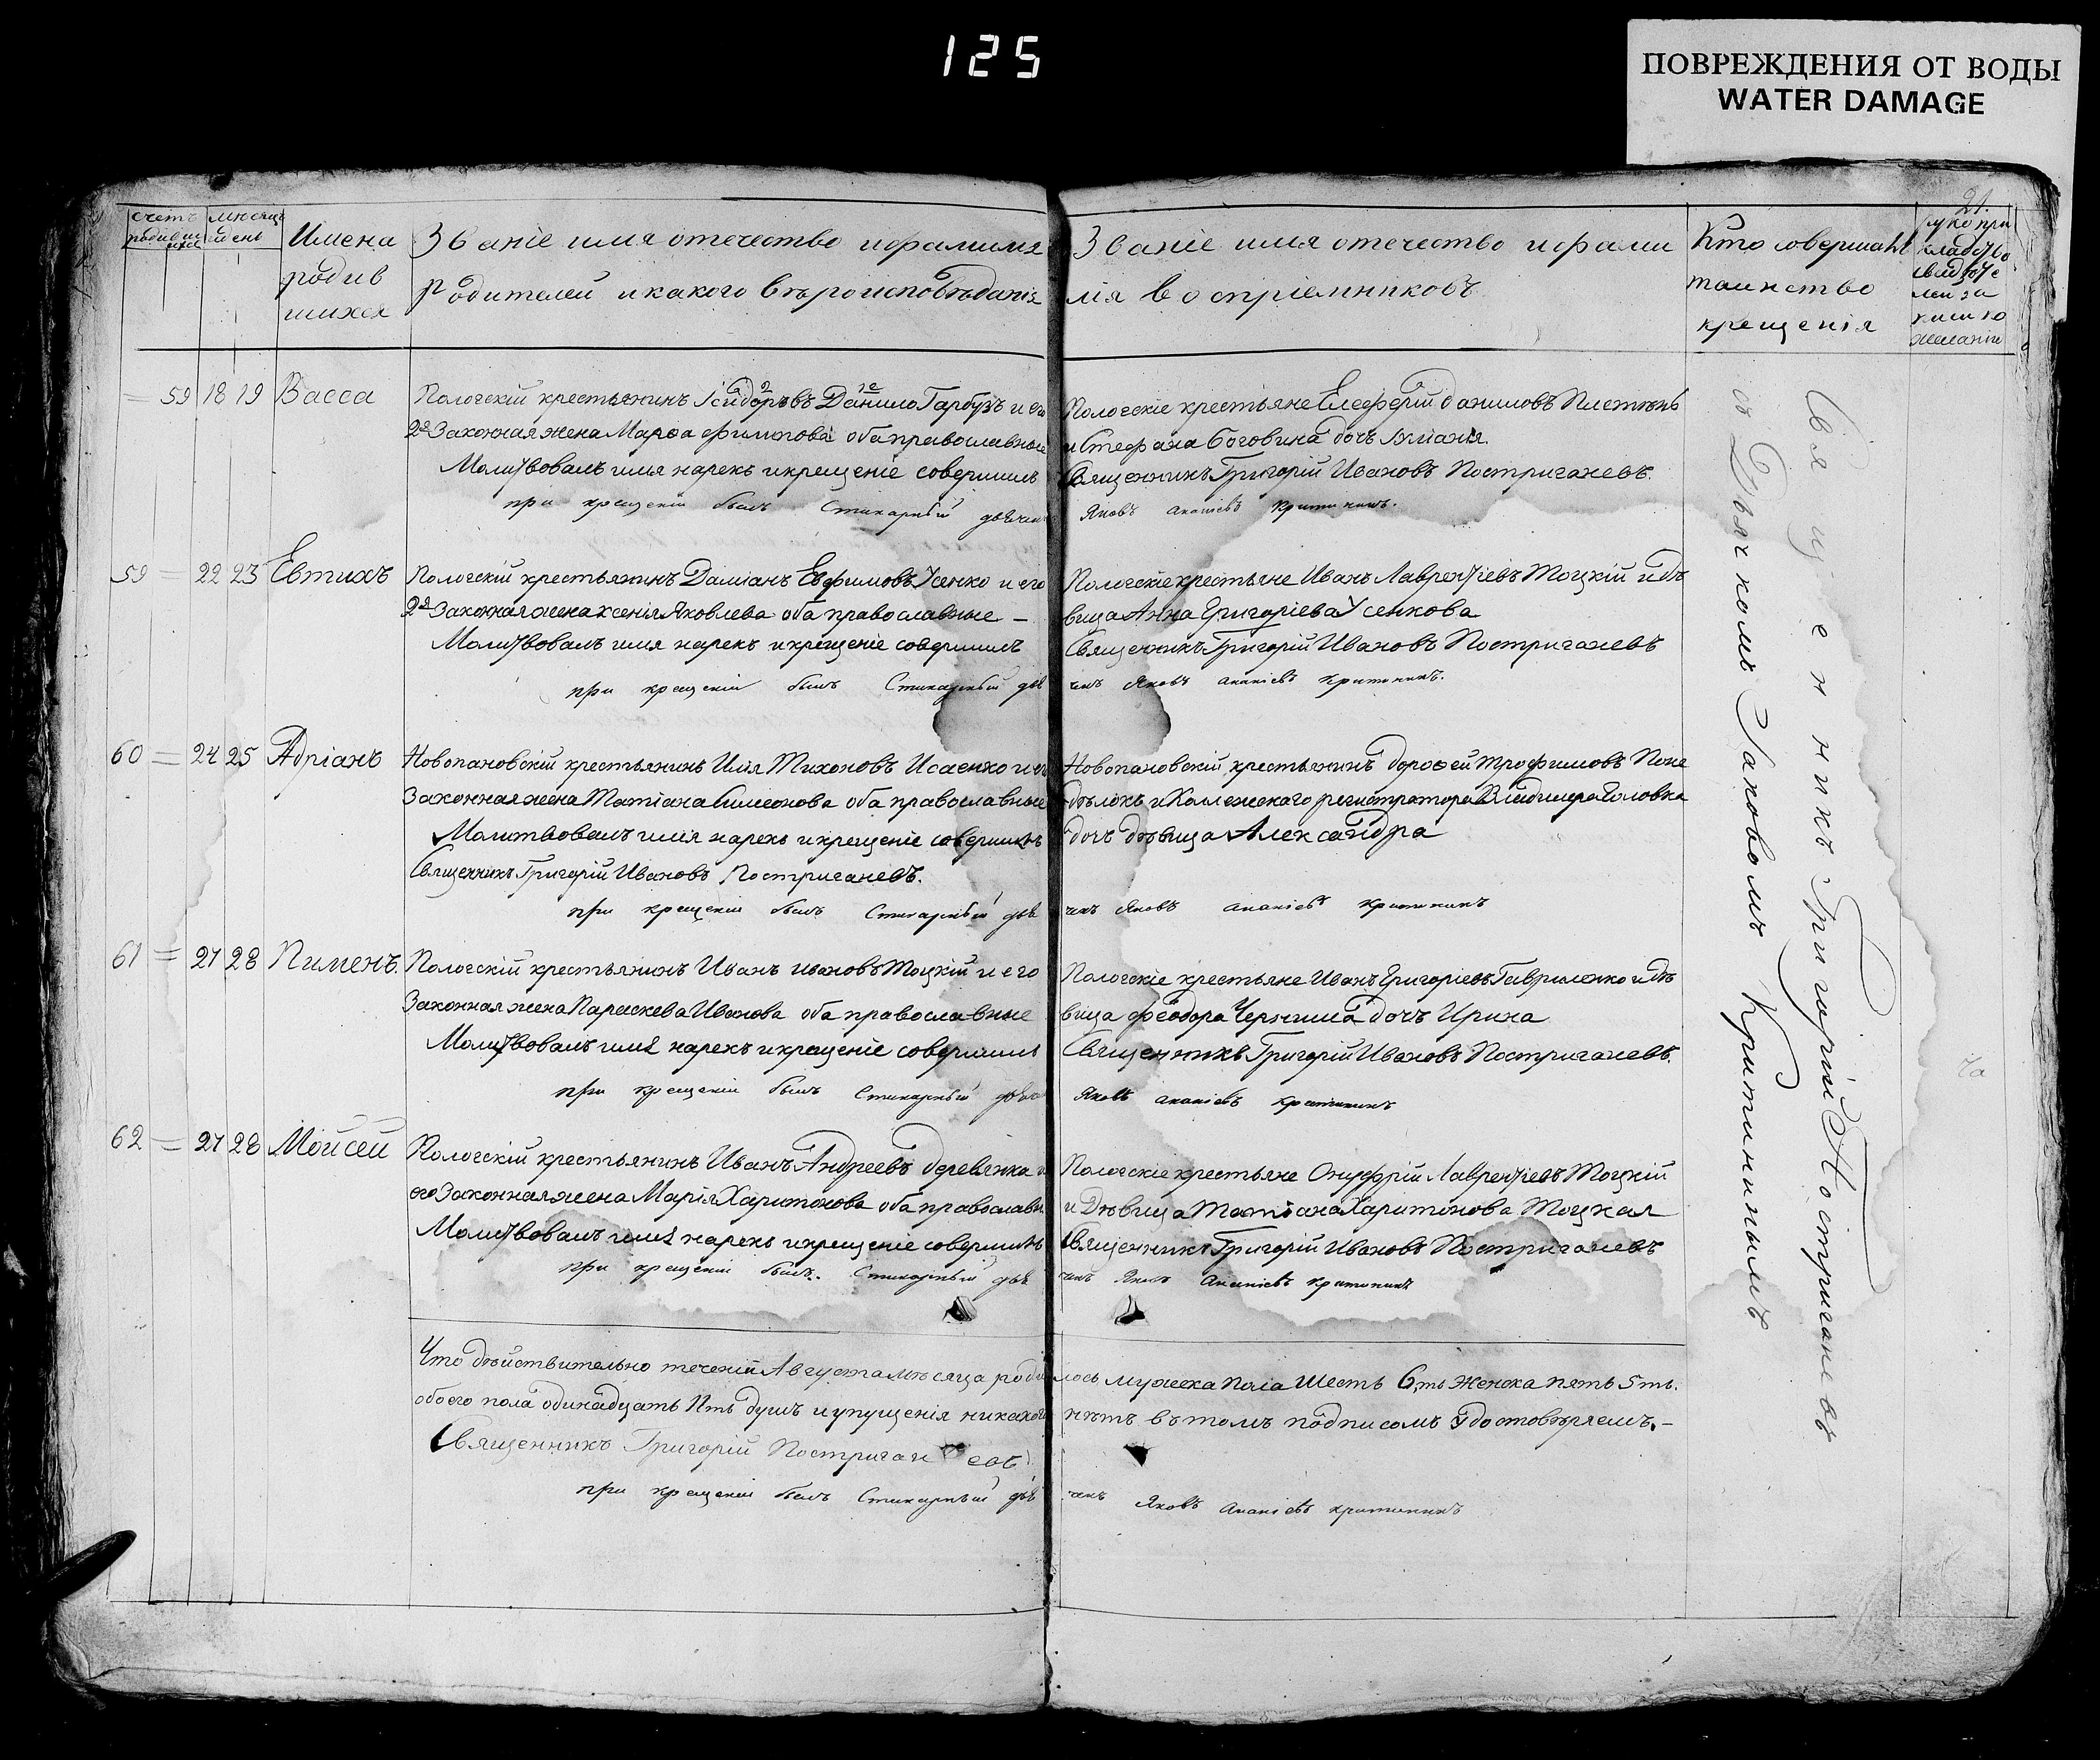 125
ПОВРЕЖДЕНИЯ ОТ ВОДЫ
WATER DAMAGE
21.
счетъ родившихся
мѣсяцъ и день
Имена родив шихся
Званіе имя отечество и фамилия
родителей и какого вѣроисповѣданія
Званіе имя отечество и фами
лія воспріемниковъ
Кто совершалъ
таинство
крещенія
59 18 19 Васса
Пологскій крестьянинъ Ісидоровъ Данило Гарбузъ и его
2я Законная жена Марѳа Филипова оба православные
Молитвовалъ имя нарекъ и крещеніе совершилъ
при крещеніи былъ Стихарный дьячекъ
Пологскіе крестьяне Елеферій Данилов Плетѣнь
и Стефана Боговина дочь
Священникъ Григорій Ивановъ Постригачевъ.
Яковъ Ананіевъ Критининъ.
59 = 22 23 Евтихъ
Пологскій крестьянинъ Даміанъ Евфимовъ Усенко и его
2я Законная жена Ксенія Яковлева оба православные –
Молитвовалъ имя нарекъ и крещеніе совершилъ
при крещеніи былъ Стихарный дья
Пологскіе крестьяне Иванъ Лаврентіевъ Тоцкій и дѣ
вица Анна Григоріева Усенкова
Священникъ Григорій Ивановъ Постригачевъ
чекъ Яковъ Ананіевъ Критининъ.
60 = 24 25 Адріанъ
Новопановскій крестьянинъ Илія Тихоновъ Исаенко и его
Законная жена Татіана Симеонова оба православные
Молитвовалъ имя нарекъ и крещеніе совершилъ
Священникъ Григорій Ивановъ Постригачевъ.
при крещеніи былъ Стихарный дья
Новопановскій крестьянинъ Дорофей Трофимовъ Поне
дѣлокъ и Коллежскаго регистратора Владимера Головка
дочь дѣвица Александра
чекъ Яковъ Ананіевъ Критининъ
61 = 27 28 Пименъ.
Пологскій крестьянинъ Иванъ Ивановъ Тоцкій и его
Законная жена Параскева Иванова оба православные
Молитвовалъ имя нарекъ и крещеніе совершилъ
при крещеніи былъ Стихарный дьячекъ
Пологскіе крестьяне Иванъ Григоріевъ Гавриленко и дѣ
вица Феодора Черныша дочь Ирина
Священникъ Григорій Ивановъ Постригачевъ.
Яковъ Ананіевъ Критининъ
62 = 27 28 Мойсей
Пологскій крестьянинъ Иванъ Андреевъ Деревянка и
его Законная жена Марія Харитонова оба православн
Молитвовалъ имя нарекъ и крещеніе совершилъ
при крещеніи былъ. Стихарный дья
Пологскіе крестьяне Онуфрій Лаврентіевъ Тоцкій
и Дѣвица Татіана Харитонова Тоцкая
Священникъ Григорій Ивановъ Постригачевъ
чекъ Яковъ Ананіевъ Критининъ
Что дѣйствительно теченіи Августа мѣсяца роди лось мужеска пола шесть 6ть женска пять 5ть.
обоего пола одинадцать 11ть душъ и упущенія никакого нѣтъ въ томъ подписомъ удостовѣряемъ. –
Священникъ Григорій Постригачевъ
при крещеніи былъ Стихарный дья чекъ Яковъ Ананіевъ Критининъ
Священникъ Григорій Постригачевъ
съ Дьячкомъ Яковомъ Критининымъ